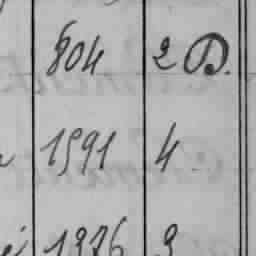 804 2 D.
1591 4
1976 3